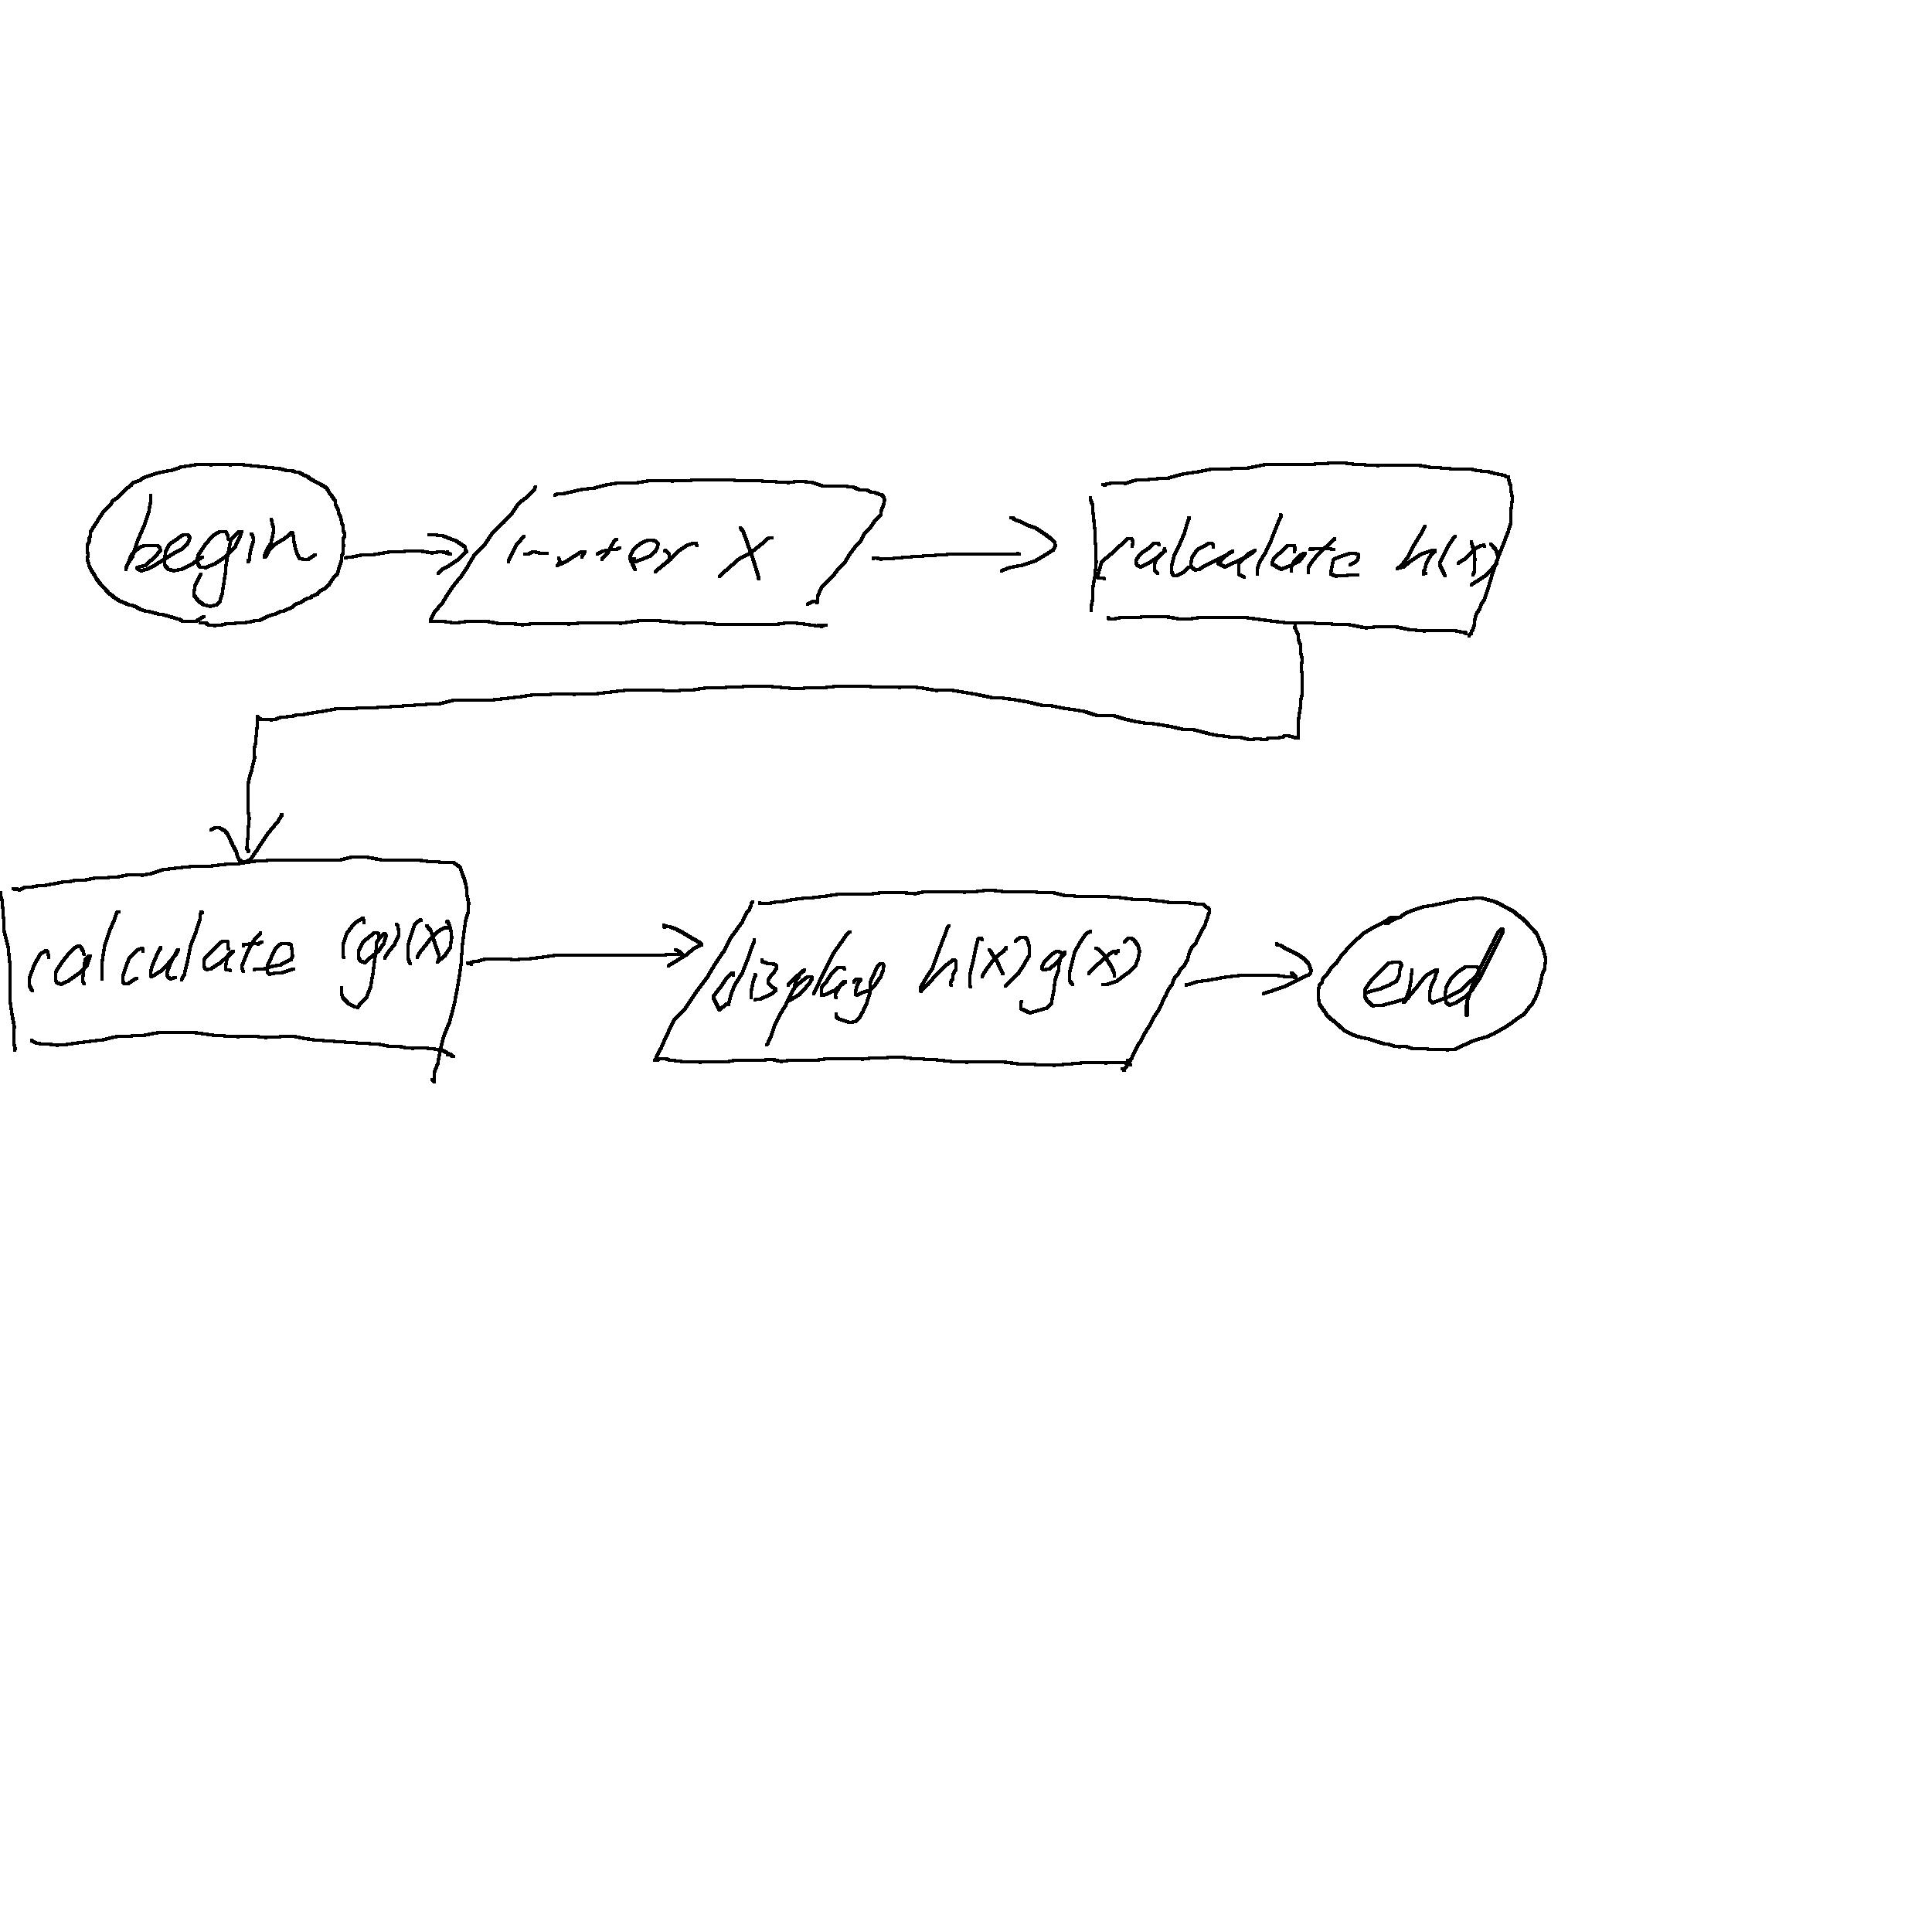 begin
enter X
calculate h(x)
calculate g(x)
display h(x) g(x)
end